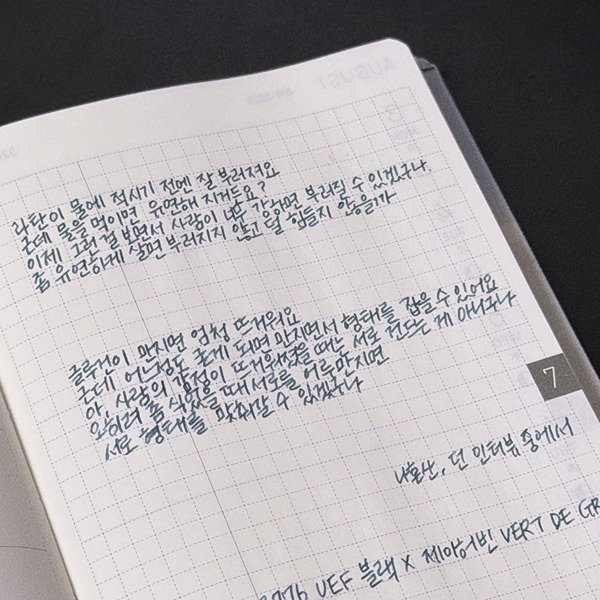 AUGUST
라탄이 물에 적시기 전엔 잘 부러져요
근데 물을 먹이면, 유연해 지거든요?
이제 그런 걸 보면서 사람이 너무 강하면 부러질 수 있겠구나.
좀 유연하게 살면 부러지지 않고 덜 힘들지 않을까
글루건이 만지면 엄청 뜨거워요
근데 어느정도 굳게 되면 만지면서 형태를 잡을 수 있어요
아, 사람의 감정이 뜨거워졌을 때는 서로 건드는 게 아니구나
오히려 좀 식었을 때 서로를 어루만지면
서로 형태를 맞춰갈 수 있겠구나
7
나환산, 던 인터뷰 중에서
UEF 블랙 X 제이허빈 VERT DE GR